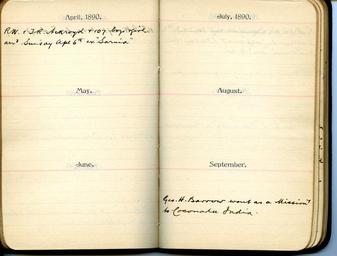 April, 1890.
R.W. & T.R. Ackroyd & 107 boys
arrd Sunday Apl 6th in "Sarnia"
May.
June.
July, 1890.
August.
September.
Geo. H. Barrow went as a Missiony
to Coconada India.